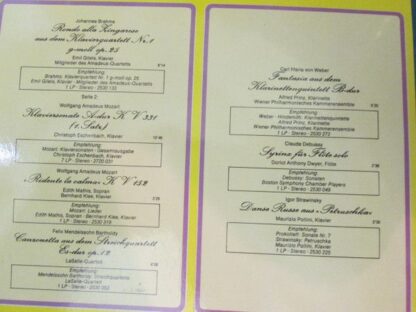 Johannes Brahms
Rondo alla Zingarese
aus dem Klavierquartett Nr. 1
g-moll op. 25
Emil Gilels, Klavier
Mitglieder des Amadeus-Quartetts
8'14
Empfehlung:
Brahms: Klavierquartett Nr. 1 g-moll op. 25
Emil Gilels, Klavier · Amadeus-Quartett
1 LP · Stereo · 2530 133
Seite 2
Wolfgang Amadeus Mozart
Klaviersonate A-dur K V 331
(1. Satz)
Christoph Eschenbach, Klavier
Empfehlung:
Mozart: Klaviersonaten · Gesamtausgabe
Christoph Eschenbach, Klavier
7 LP · Stereo · 2720 031
Wolfgang Amadeus Mozart
»Ridente la calma« K V 152
Edith Mathis, Sopran
Bernhard Klee, Klavier
Empfehlung:
Mozart: Lieder
Edith Mathis, Sopran
Bernhard Klee, Klavier
1 LP · Stereo · 2530 319
Felix Mendelssohn Bartholdy
Canzonetta aus dem Streichquartett
Es-dur op. 12
LaSalle-Quartett
Empfehlung:
Mendelssohn Bartholdy: Streichquartette
LaSalle-Quartett
1 LP · Stereo · 2530 053
Carl Maria von Weber
Fantasia aus dem
Klarinettenquintett B-dur
Alfred Prinz, Klarinette
Wiener Philharmonisches Kammerensemble
Empfehlung:
Weber · Hindemith: Klarinettenquintette
Alfred Prinz, Klarinette
Wiener Philharmonisches Kammerensemble
Claude Debussy
Syrinx für Flöte solo
Doriot Anthony Dwyer, Flöte
Empfehlung:
Debussy: Sonaten
Boston Symphony Chamber Players
1 LP · Stereo · 2530 049
Igor Strawinsky
Danse Russe aus »Petruschka«
Maurizio Pollini, Klavier
Empfehlung:
Prokofieff: Sonate Nr. 7
Strawinsky: Petruschka
Maurizio Pollini, Klavier
1 LP · Stereo · 2530 225